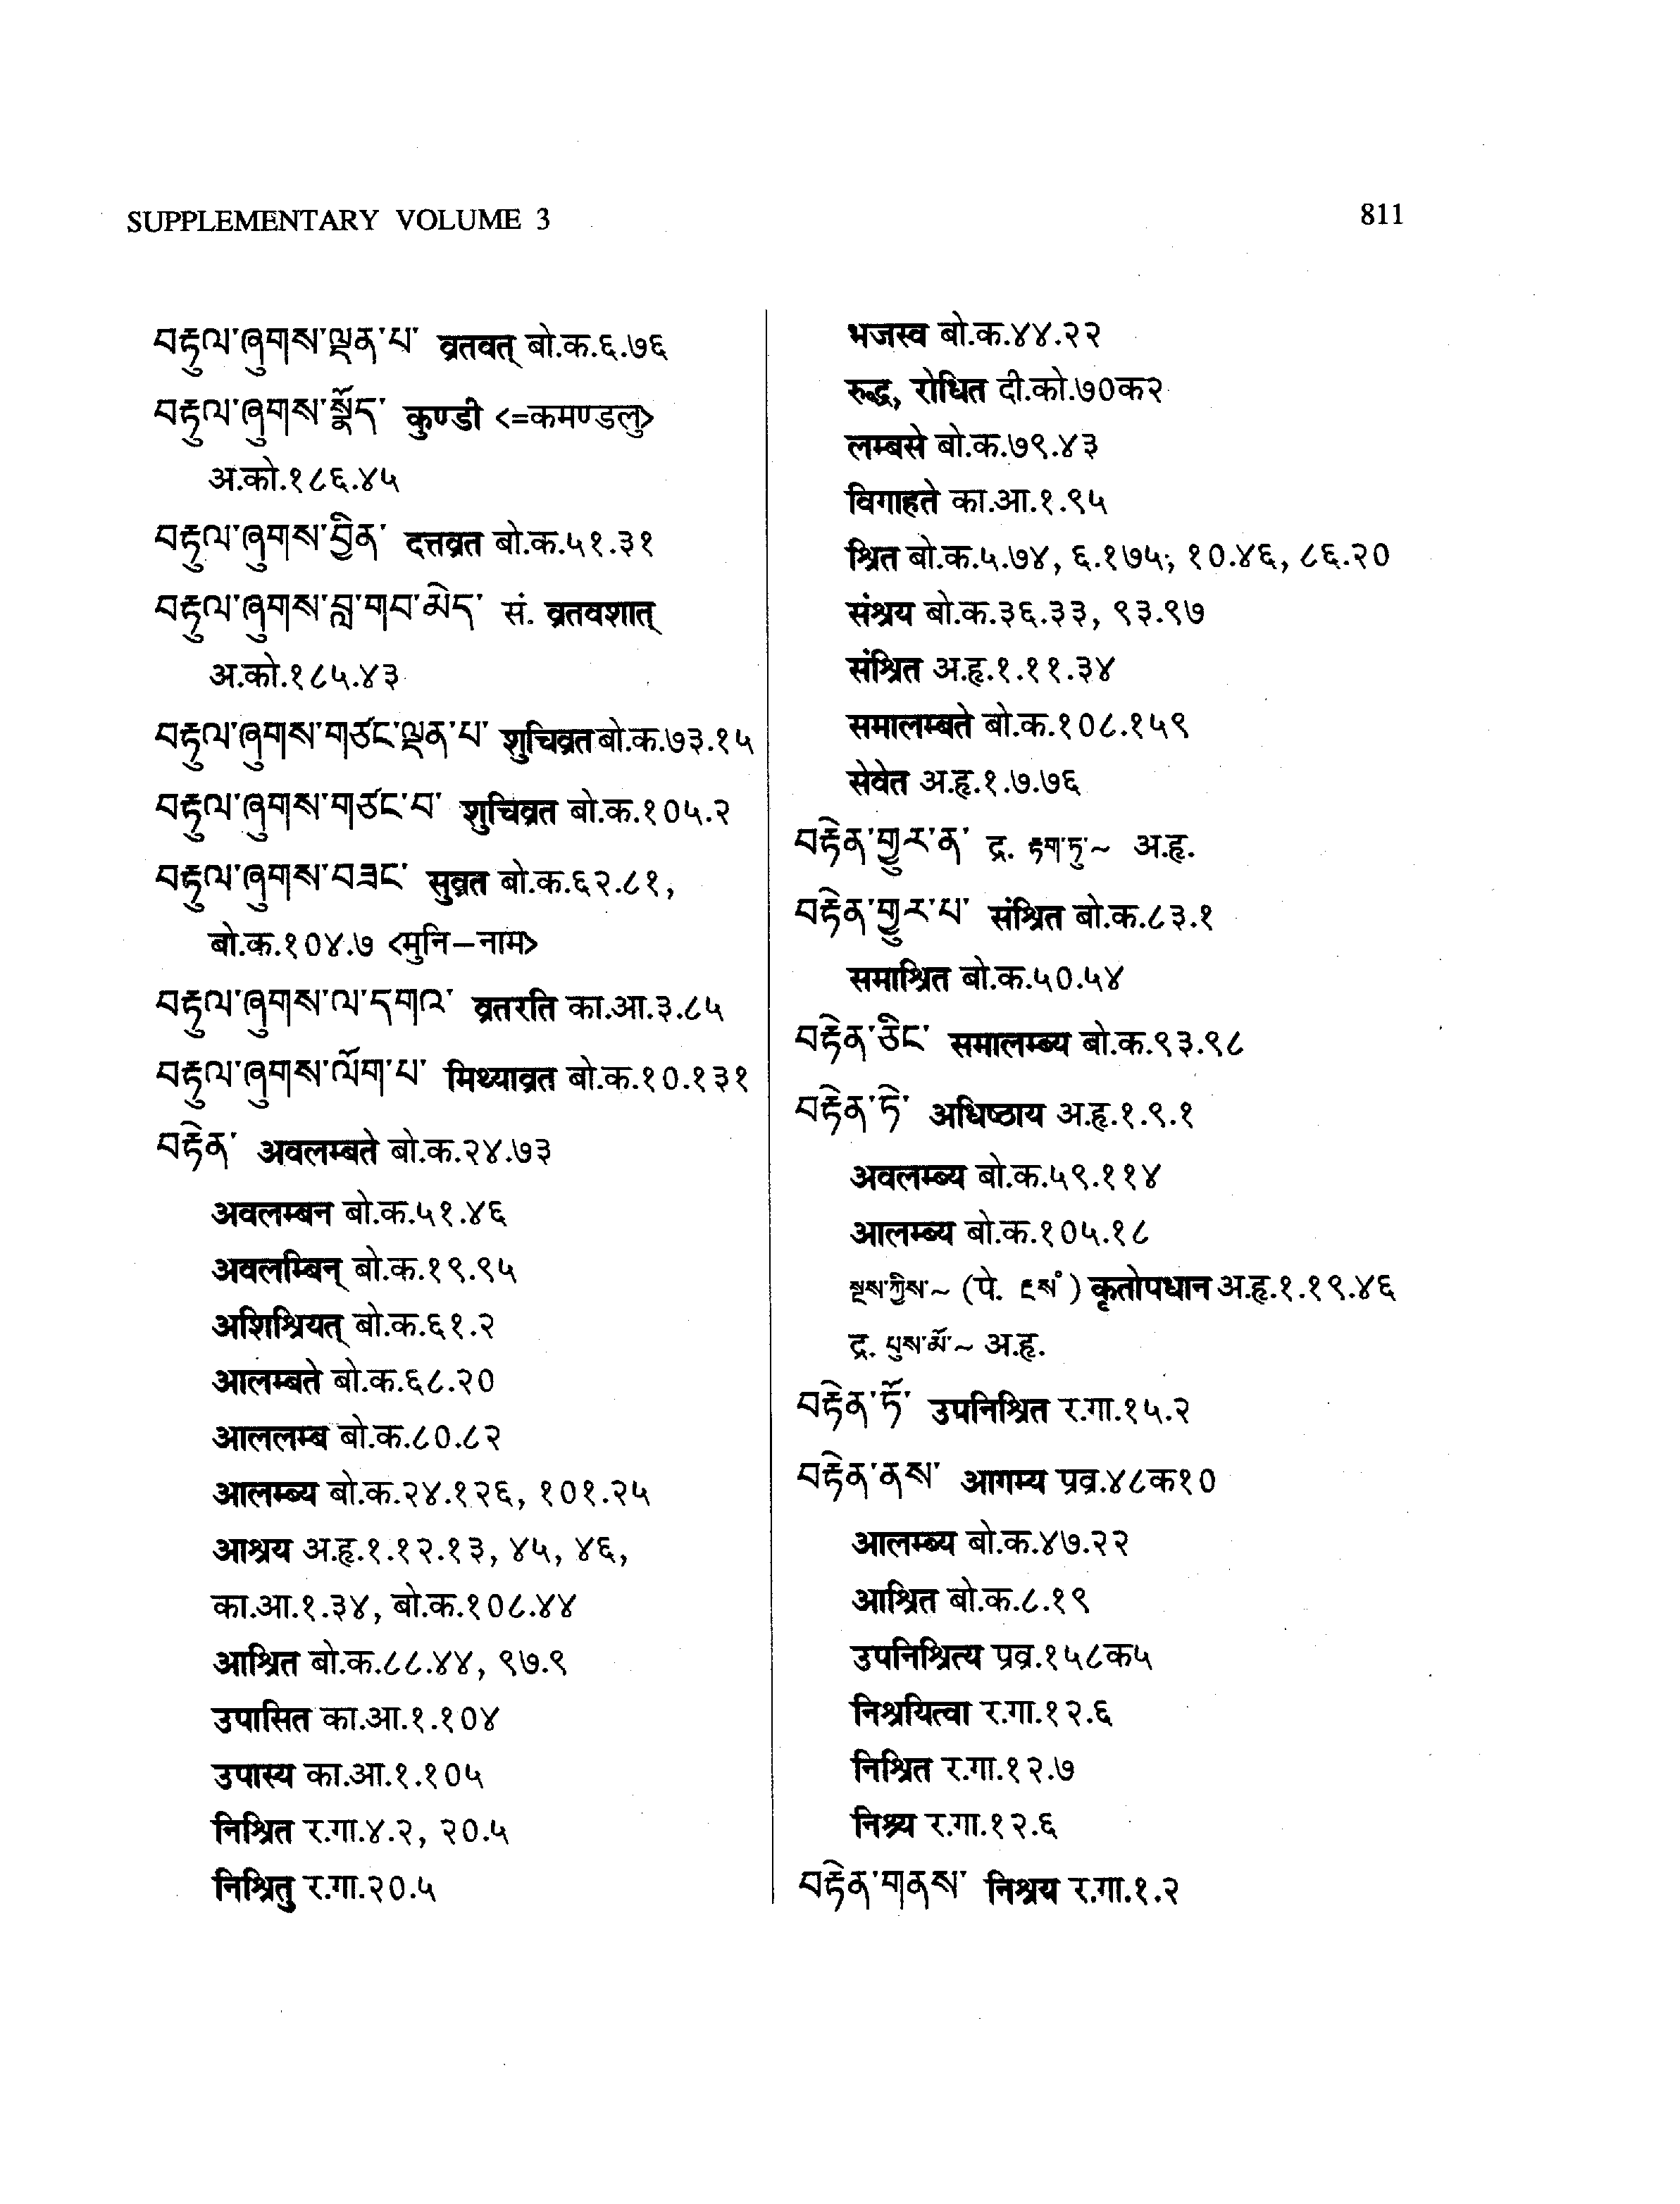 SUPPLEMENTARY VOLUME 3
811
བརྟུལ་ཞུགས་ལྡན་པ་ व्रतवत् बो.क.६.७६
བརྟུལ་ཞུགས་སྣོད་ कुण्डी <=कमण्डलु>
अ.को.१८६.४५
བརྟུལ་ཞུགས་བྱིན་ दत्तव्रत बो.क.५१.३१
བརྟུལ་ཞུགས་བླ་གབ་མེད་ सं. व्रतवशात्
अ.को.१८५.४३
བརྟུལ་ཞུགས་གཙང་ལྡན་པ་ शुचिव्रत बो.क.७३.१५
བརྟུལ་ཞུགས་གཙང་བ་ शुचिव्रत बो.क.१०५.२
བརྟུལ་ཞུགས་བཟང་ सुव्रत बो.क.६२.८१,
बो.क.१०४.७ <मुनि–नाम>
བརྟུལ་ཞུགས་ལ་དགའ་ व्रतरति का.आ.३.८५
བརྟུལ་ཞུགས་ལོག་པ་ मिथ्याव्रत बो.क.१०.१३१
བརྟེན་ अवलम्बते बो.क.२४.७३
अवलम्बन बो.क.५१.४६
अवलम्बिन् बो.क.१९.९५
अशिश्रियत् बो.क.६१.२
आलम्बते बो.क.६८.२०
आललम्ब बो.क.८०.८२
आलम्ब्य बो.क.२४.१२६, १०१.२५
आश्रय अ.हृ.१.१२.१३, ४५, ४६,
का.आ.१.३४, बो.क.१०८.४४
आश्रित बो.क.८८.४४, ९७.९
उपासित का.आ.१.१०४
उपास्य का.आ.१.१०५
निश्रित र.गा.४.२, २०.५
निश्रितु र.गा.२०.५
भजस्व बो.क.४४.२२
रुद्ध, रोधित दी.को.७०क२
लम्बसे बो.क.७९.४३
विगाहते का.आ.१.९५
श्रित बो.क.५.७४, ६.१७५; १०.४६, ८६.२०
संश्रय बो.क.३६.३३, ९३.९७
संश्रित अ.हृ.१.११.३४
समालम्बते बो.क.१०८.१५९
सेवेत अ.हृ.१.७.७६
བརྟེན་གྱུར་ན་ द्र. རྟག་ཏུ་~ अ.हृ.
བརྟེན་གྱུར་པ་ संश्रित बो.क.८३.१
समाश्रित बो.क.५०.५४
བརྟེན་ཅིང་ समालम्ब्य बो.क.९३.९८
བརྟེན་ཏེ་ अधिष्ठाय अ.हृ.१.९.१
अवलम्ब्य बो.क.५९.११४
आलम्ब्य बो.क.१०५.१८
སྔས་ཀྱིས་~ (पे. ) कृतोपधान अ.हृ.१.१९.४६
द्र. པུས་མོ་~ अ.हृ.
བརྟེན་ཏོ་ उपनिश्रित र.गा.१५.२
བརྟེན་ནས་ आगम्य प्रव्र.४८क१०
आलम्ब्य बो.क.४७.२२
आश्रित बो.क.८.१९
उपनिश्रित्य प्रव्र.१५८क५
निश्रयित्वा र.गा.१२.६
निश्रित र.गा.१२.७
निश्र्य र.गा.१२.६
བརྟེན་གནས་ निश्रय र.गा.१.२